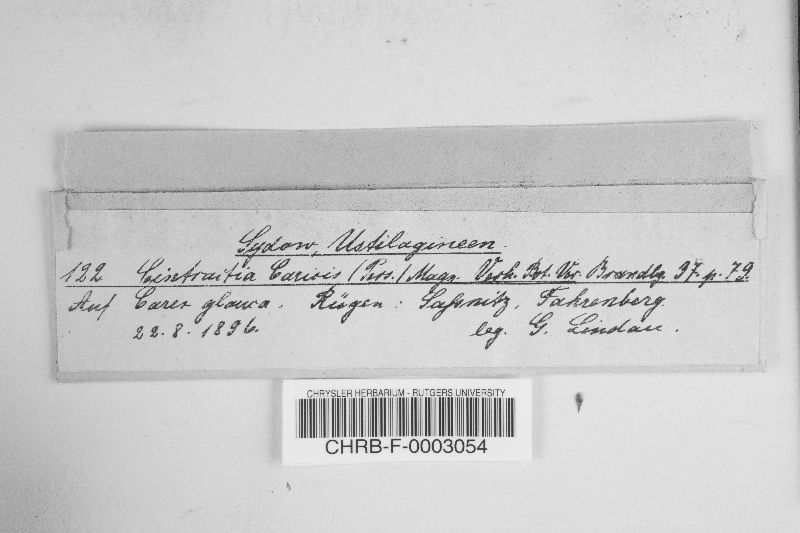 Sydow, Ustilagineen.
122 Cintractia Caricis (Pers.) Magn. Verh. Bot. Ver. Brandbg. 37. p. 79.
Auf Carex glauca. Rügen: Saßnitz, Fahrenberg.
22. 8. 1896. leg. G. Lindau.
CHRYSLER HERBARIUM - RUTGERS UNIVERSITY
CHRB-F-0003054